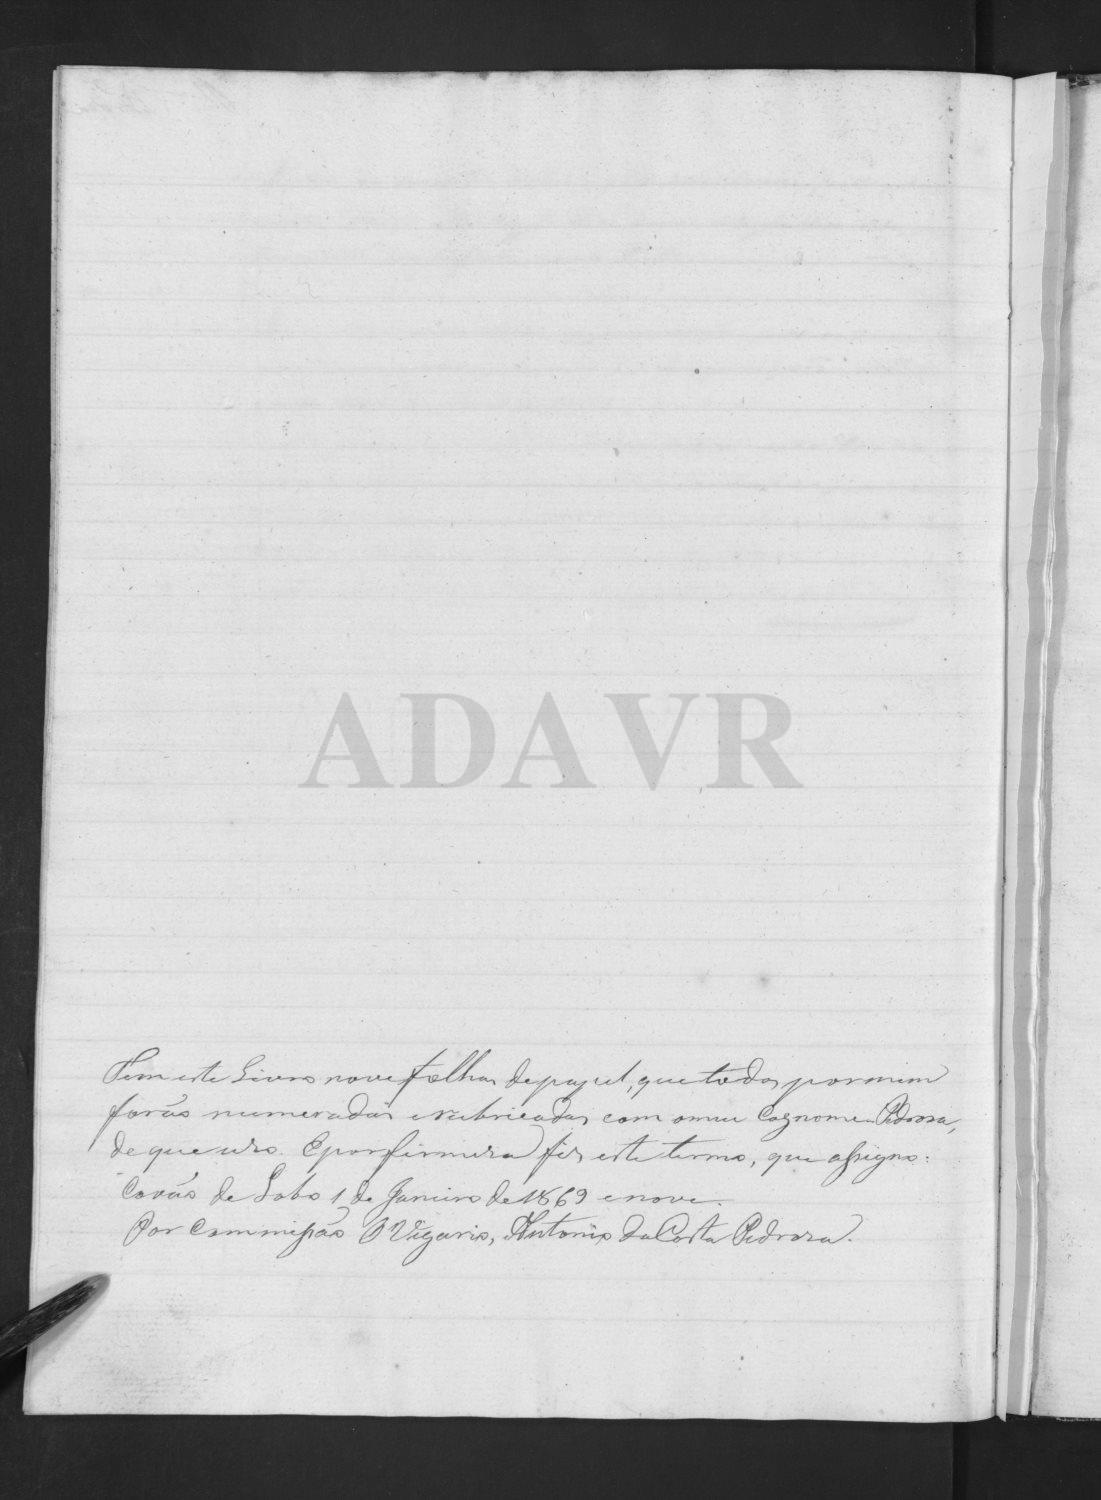 ADAVR
Tem este Livro nove folhas de papel, que todas por mim
forão numeradas e rubricadas com o meu cognome Pedrosa,
de que uso. E por firmeza fiz este termo, que assigno:
Covão de Lobo 1 de Janeiro de 1869 e nove.
Por Commissão O Vigario, Antonio da Costa Pedrosa.